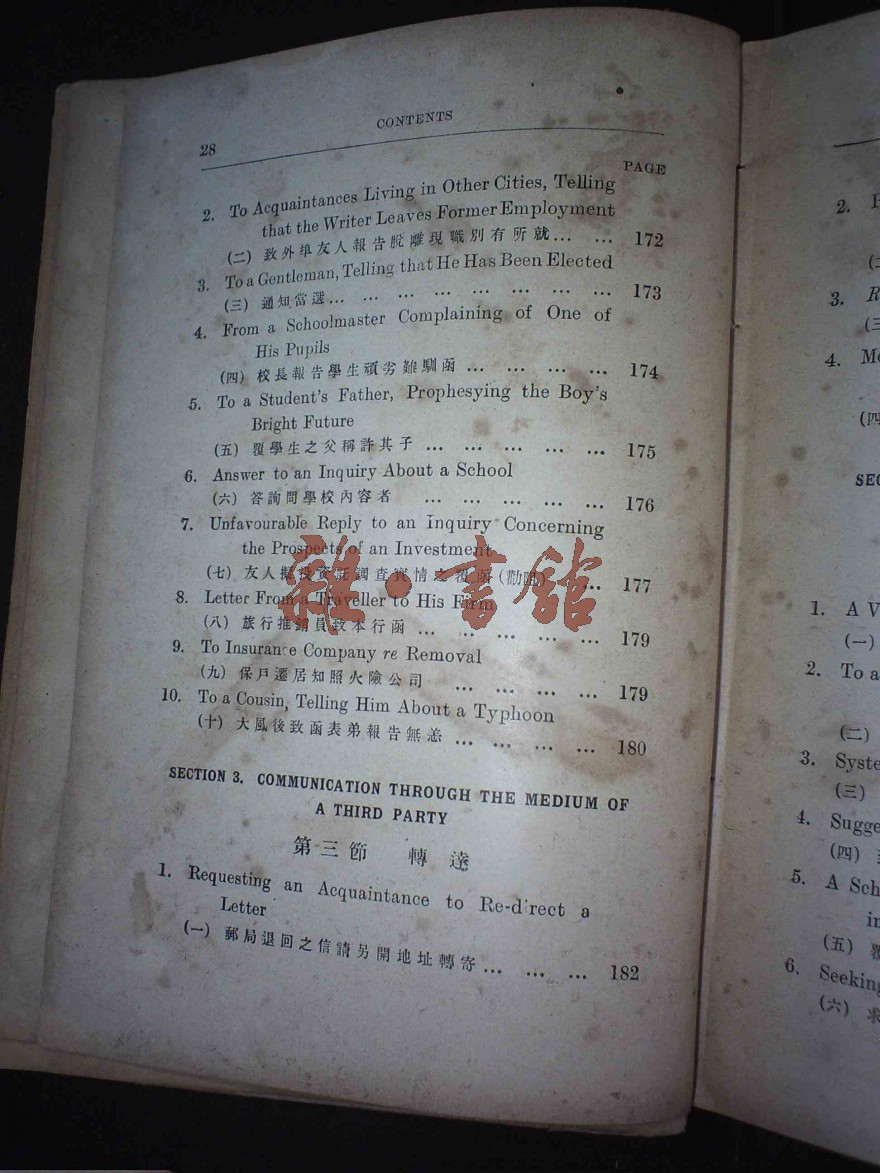 CONTENTS
28
PAGE
2. To Acquaintances Living in Other Cities, Telling
that the Writer Leaves Former Employment
(二) 致外埠友人報告脫離現職別有所就... ... 172
3. To a Gentleman, Telling that He Has Been Elected
(三) 通知當選... ... ... ... ... ... ... ... 173
4. From a Schoolmaster Complaining of One of
His Pupils
(四) 校長報告學生頑劣難馴函 ... ... ... ... 174
5. To a Student's Father, Prophesying the Boy's
Bright Future
(五) 覆學生之父稱許其子 ... ... ... ... ... 175
6. Answer to an Inquiry About a School
(六) 答詢問學校內容者 ... ... ... ... ... 176
7. Unfavourable Reply to an Inquiry Concerning
the Prospects of an Investment
(七) 友人擬投資託調查實情之覆函 (勸阻) ... 177
8. Letter From a Traveller to His Firm
(八) 旅行推銷員致本行函 ... ... ... ... ... 179
9. To Insurance Company re Removal
(九) 保戶遷居知照火險公司 ... ... ... ... 179
10. To a Cousin, Telling Him About a Typhoon
(十) 大風後致函表弟報告無恙 ... ... ... ... 180
SECTION 3. COMMUNICATION THROUGH THE MEDIUM OF
A THIRD PARTY
第三節 轉達
1. Requesting an Acquaintance to Re-direct a
Letter
(一) 郵局退回之信請另開地址轉寄 ... ... ... 182
雜·書館
2.
3. R
(三
4. Mo
(四
SEC
1. A V
(一)
2. To a
(二)
3. Syste
(三)
4. Sugge
(四)
5. A Sch
in
(五) 覆
6. Seeking
(六) 求